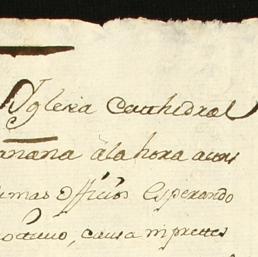 Yglesia Cauthedral
anana àla hora acos
mas officios Esperando
causa